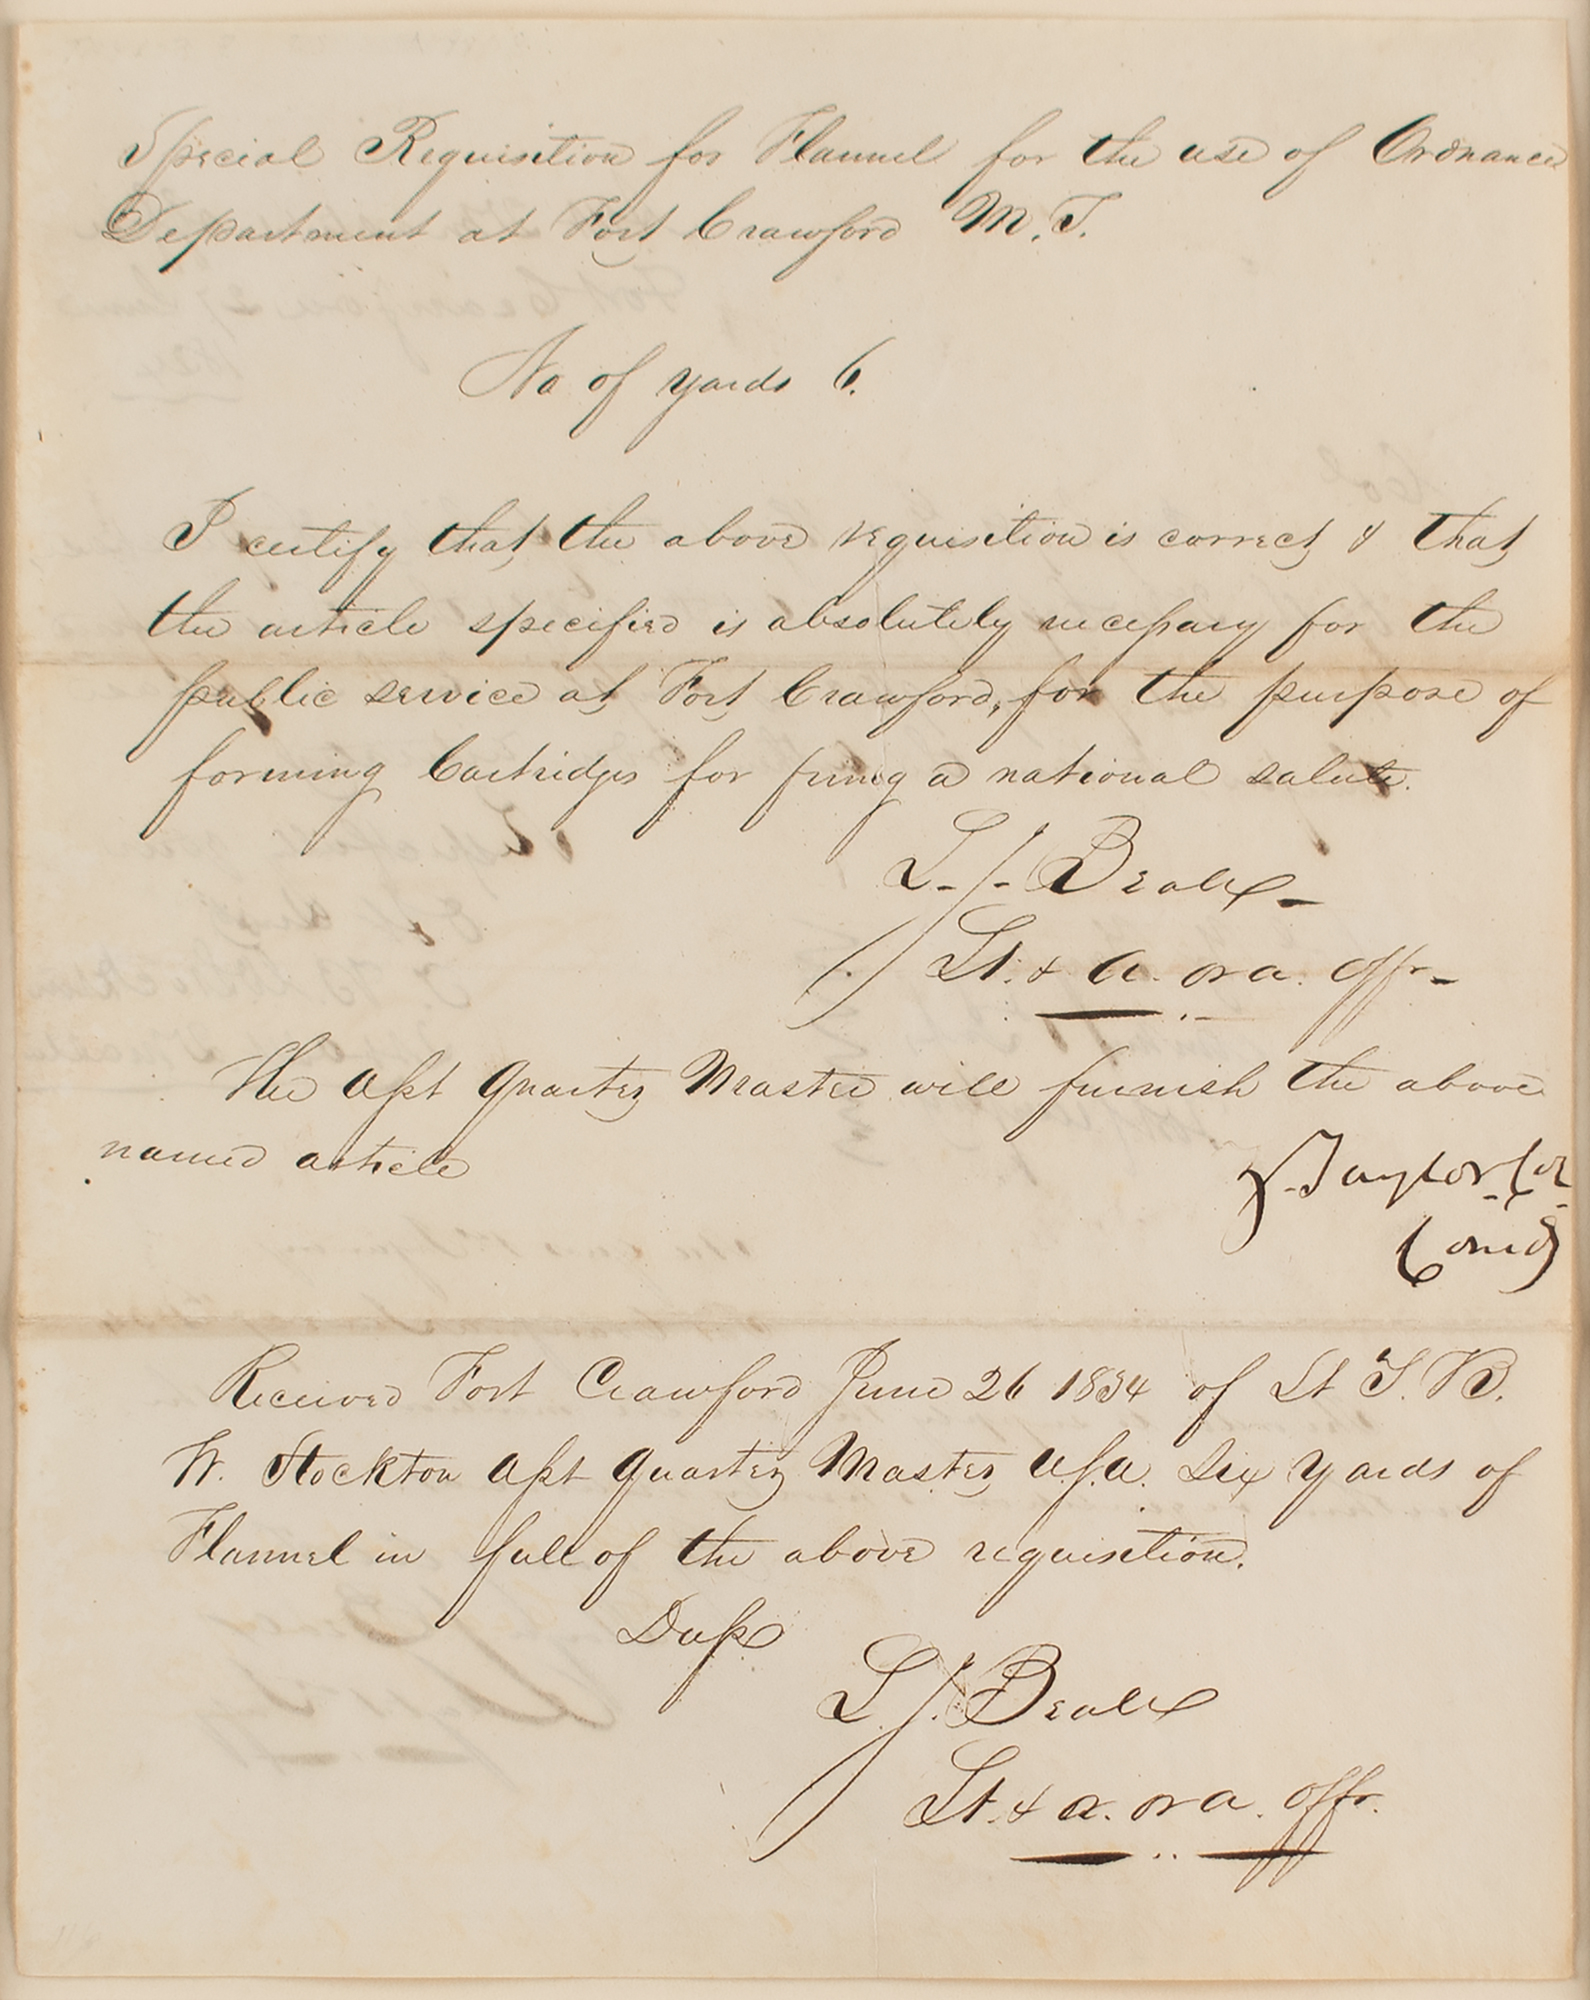 Special Requisition for Flannel for the use of Ordnance
Department at Fort Crawford M. T.
No of yards 6.
I certify that the above requisition is correct & that
the article specified is absolutely necessary for the
public service at Fort Crawford, for the purpose of
forming Cartridges for firing a national salute.
L. J. Beall
Lt. & A. ord. offr.
The Asst Quarter Master will furnish the above
named article
Z. Taylor Col
Comdg
Received Fort Crawford June 26 1834 of Lt T. B.
W. Stockton Asst Quarter Master U.S.A. Six yards of
Flannel in full of the above requisition.
Dups
L J. Beall
Lt. & A. ord. offr.